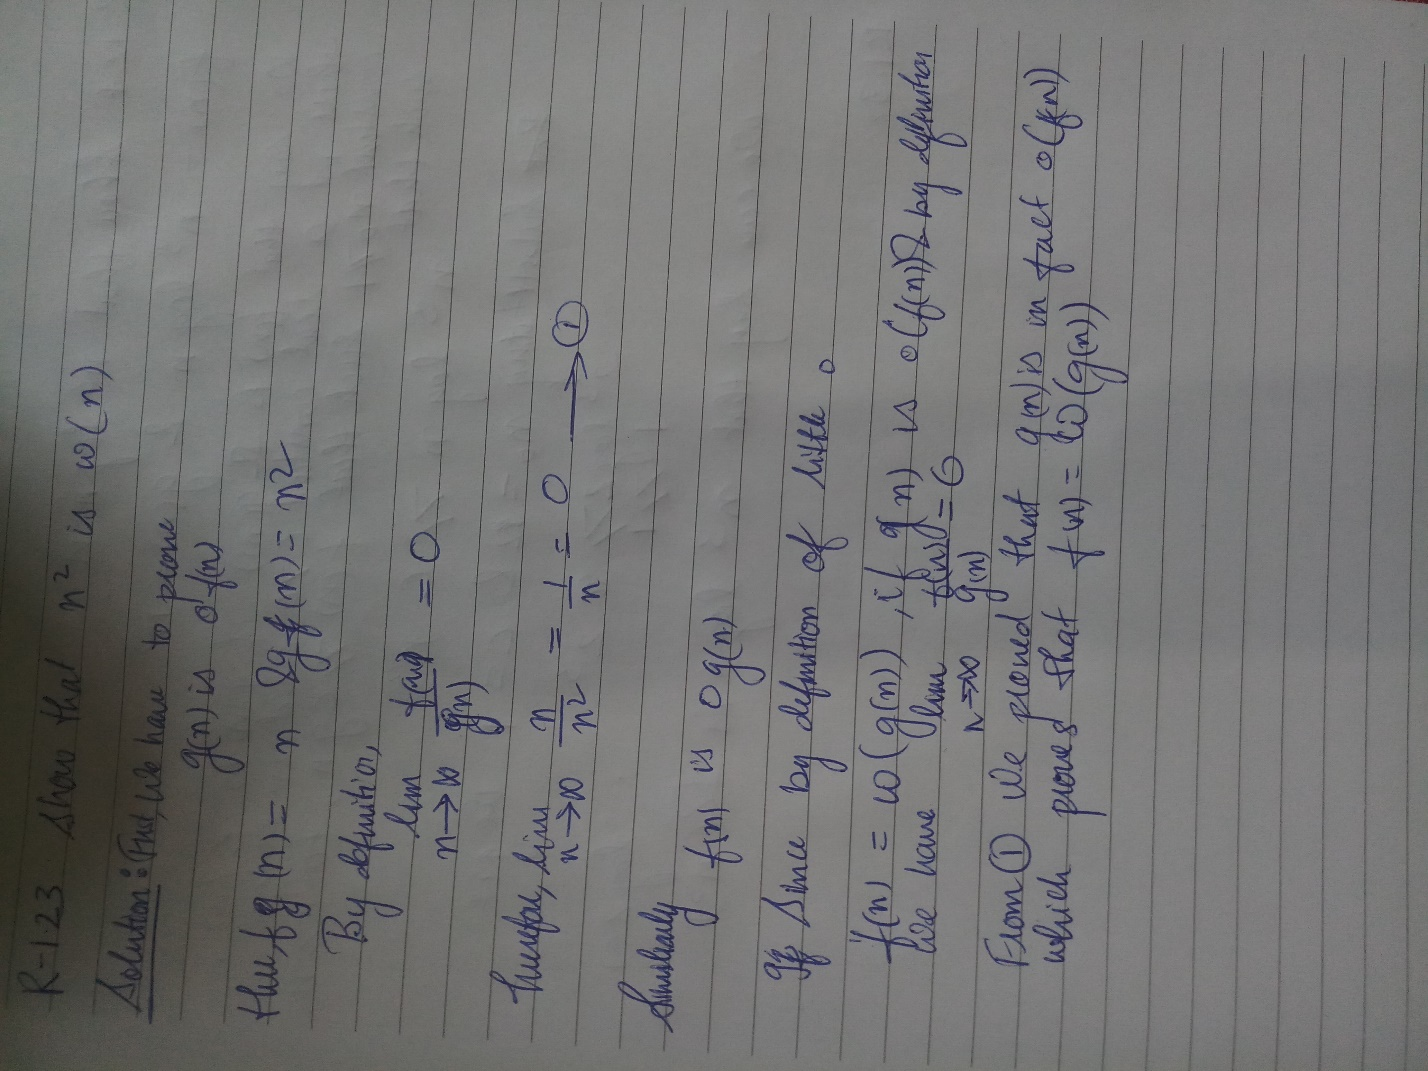 R-1.23 Show that n² is ω(n)
Solution: First, We have to prove
g(n) is o f(n)
g(n) = n & f(n) = n²
By definition,
lim n→∞ f(n)/g(n) = 0
Therefore, lim n→∞ n/n² = 1/n = 0 → ①
Similarly
f(n) is o g(n)
Since by definition of little o
f(n) = ω(g(n)), if g(n) is o(f(n)) & by definition
We have lim n→∞ f(n)/g(n) = 0
From ① We proved that g(n) is in fact o(f(n))
which proves that f(n) = ω(g(n))